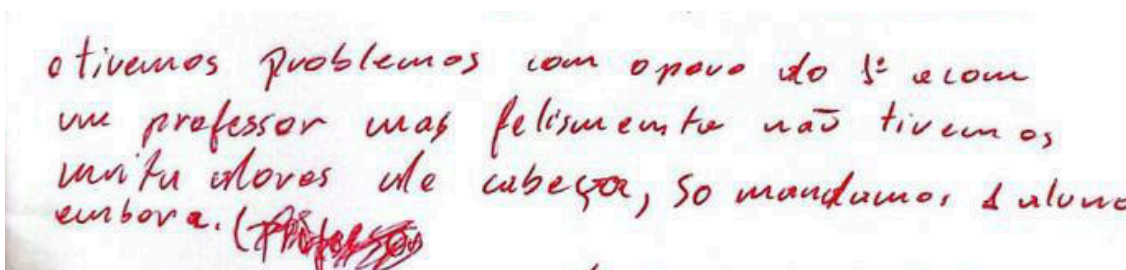 otivemos problemos com o povo do 1º e com
um professor mas felismente não tivemos
muita dores de cabeça, so mandamos 1 aluno
embora. (